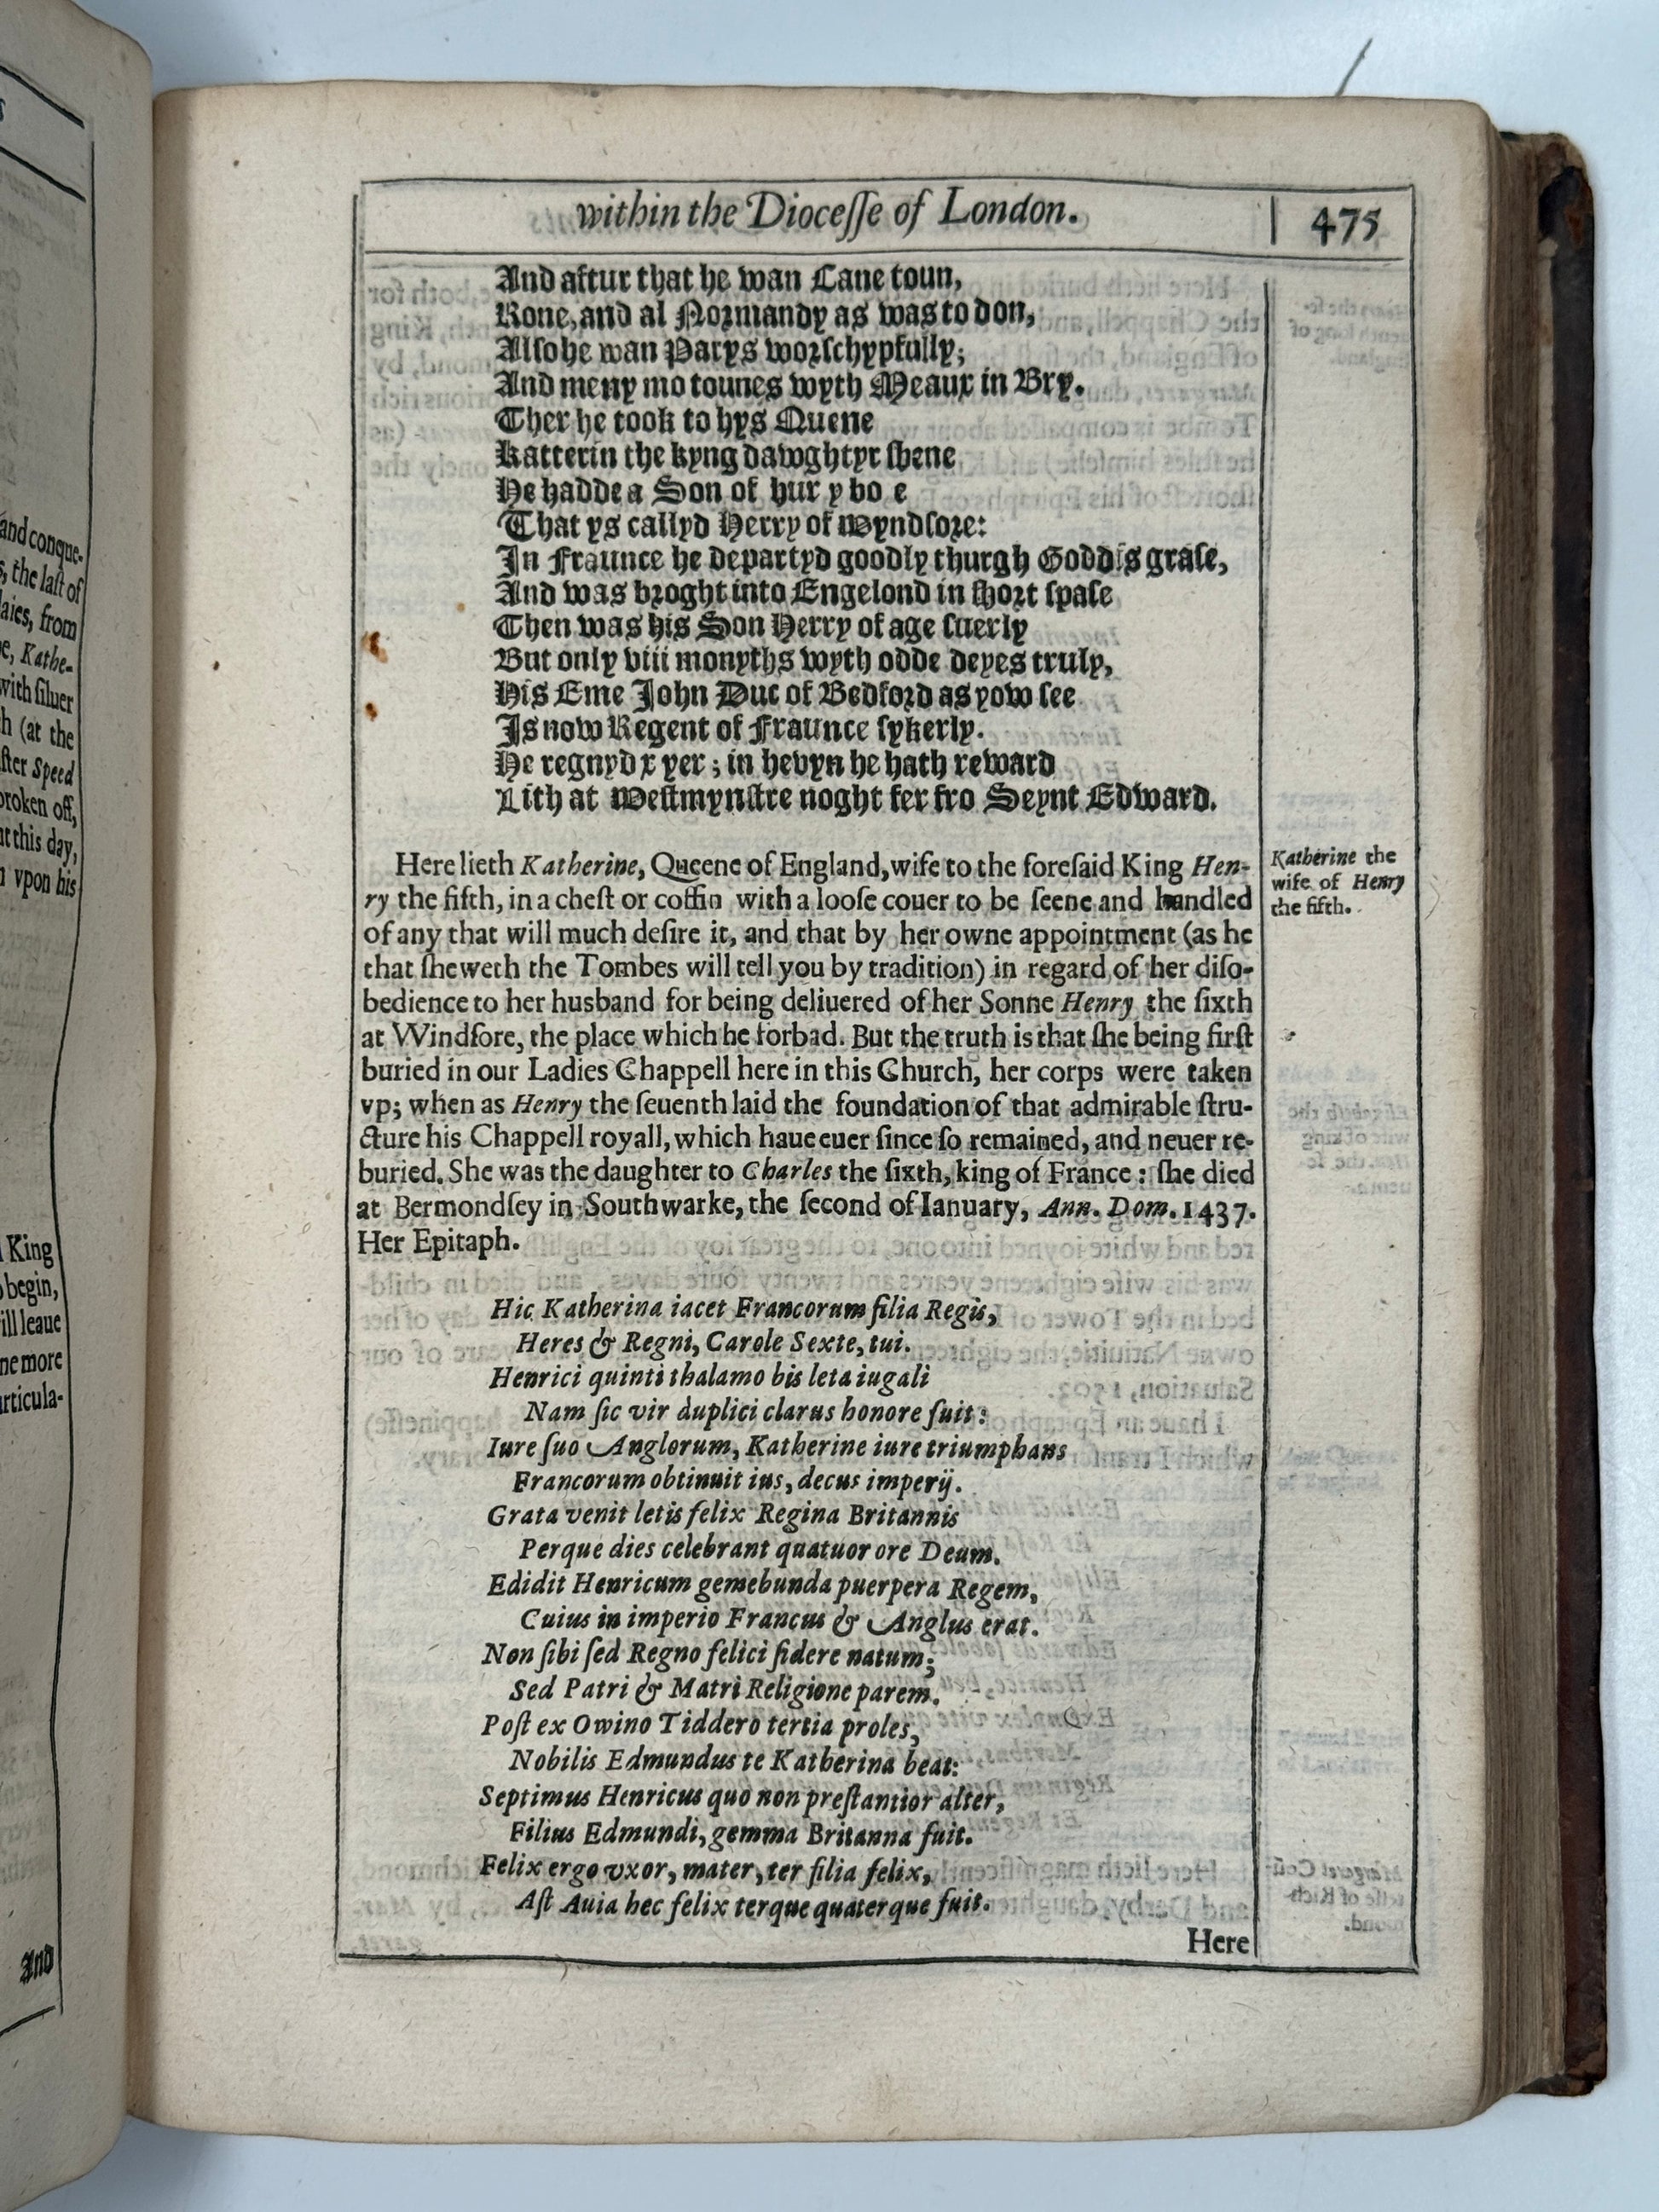 and conque-
s, the laſt of
laies, from
e, Kathe-
with ſiluer
h (at the
ſter Speed
broken off,
at this day,
n vpon his
King
begin,
ill leaue
ne more
articula-
And
within the Dioceſſe of London.
475
And aftur that he wan Cane toun,
Rone, and al Normandy as was to don,
Alſo he wan Parys worſchypfully;
And meny mo tounes wyth Meaux in Bry.
Ther he took to hys Quene
Katterin the kyng dawghtyr ſhene
He hadde a Son of hur y bo e
That ys callyd Herry of Wyndſore:
In Fraunce he departyd goodly thurgh Goddis graſe,
And was broght into Engelond in ſhort ſpaſe
Then was his Son Herry of age ſuerly
But only viii monyths wyth odde deyes truly,
His Eme John Duc of Bedford as yow ſee
Is now Regent of Fraunce ſykerly.
He regnyd x yer; in hevyn he hath reward
Lith at Weſtmynſtre noght fer fro Seynt Edward.
Here lieth Katherine, Queene of England, wife to the foreſaid King Hen-
ry the fifth, in a cheſt or coffin with a looſe couer to be ſeene and handled
of any that will much deſire it, and that by her owne appointment (as he
that ſheweth the Tombes will tell you by tradition) in regard of her diſo-
bedience to her husband for being deliuered of her Sonne Henry the ſixth
at Windſore, the place which he forbad. But the truth is that ſhe being firſt
buried in our Ladies Chappell here in this Church, her corps were taken
vp; when as Henry the ſeuenth laid the foundation of that admirable ſtru-
cture his Chappell royall, which haue euer ſince ſo remained, and neuer re-
buried. She was the daughter to Charles the ſixth, king of France: ſhe died
at Bermondſey in Southwarke, the ſecond of Ianuary, Ann. Dom. 1437.
Her Epitaph.
Katherine the
wife of Henry
the fifth.
Hic Katherina iacet Francorum filia Regis,
Heres & Regni, Carole Sexte, tui.
Henrici quinti thalamo bis leta iugali
Nam ſic vir duplici clarus honore fuit:
Iure ſuo Anglorum, Katherine iure triumphans
Francorum obtinuit ius, decus imperij.
Grata venit letis felix Regina Britannis
Perque dies celebrant quatuor ore Deum.
Edidit Henricum gemebunda puerpera Regem,
Cuius in imperio Francus & Anglus erat.
Non ſibi ſed Regno felici ſidere natum;
Sed Patri & Matri Religione parem.
Poſt ex Owino Tiddero tertia proles,
Nobilis Edmundus te Katherina beat:
Septimus Henricus quo non preſtantior alter,
Filius Edmundi, gemma Britanna fuit.
Felix ergo vxor, mater, ter filia felix,
Aſt Auia hec felix terque quaterque fuit.
Here